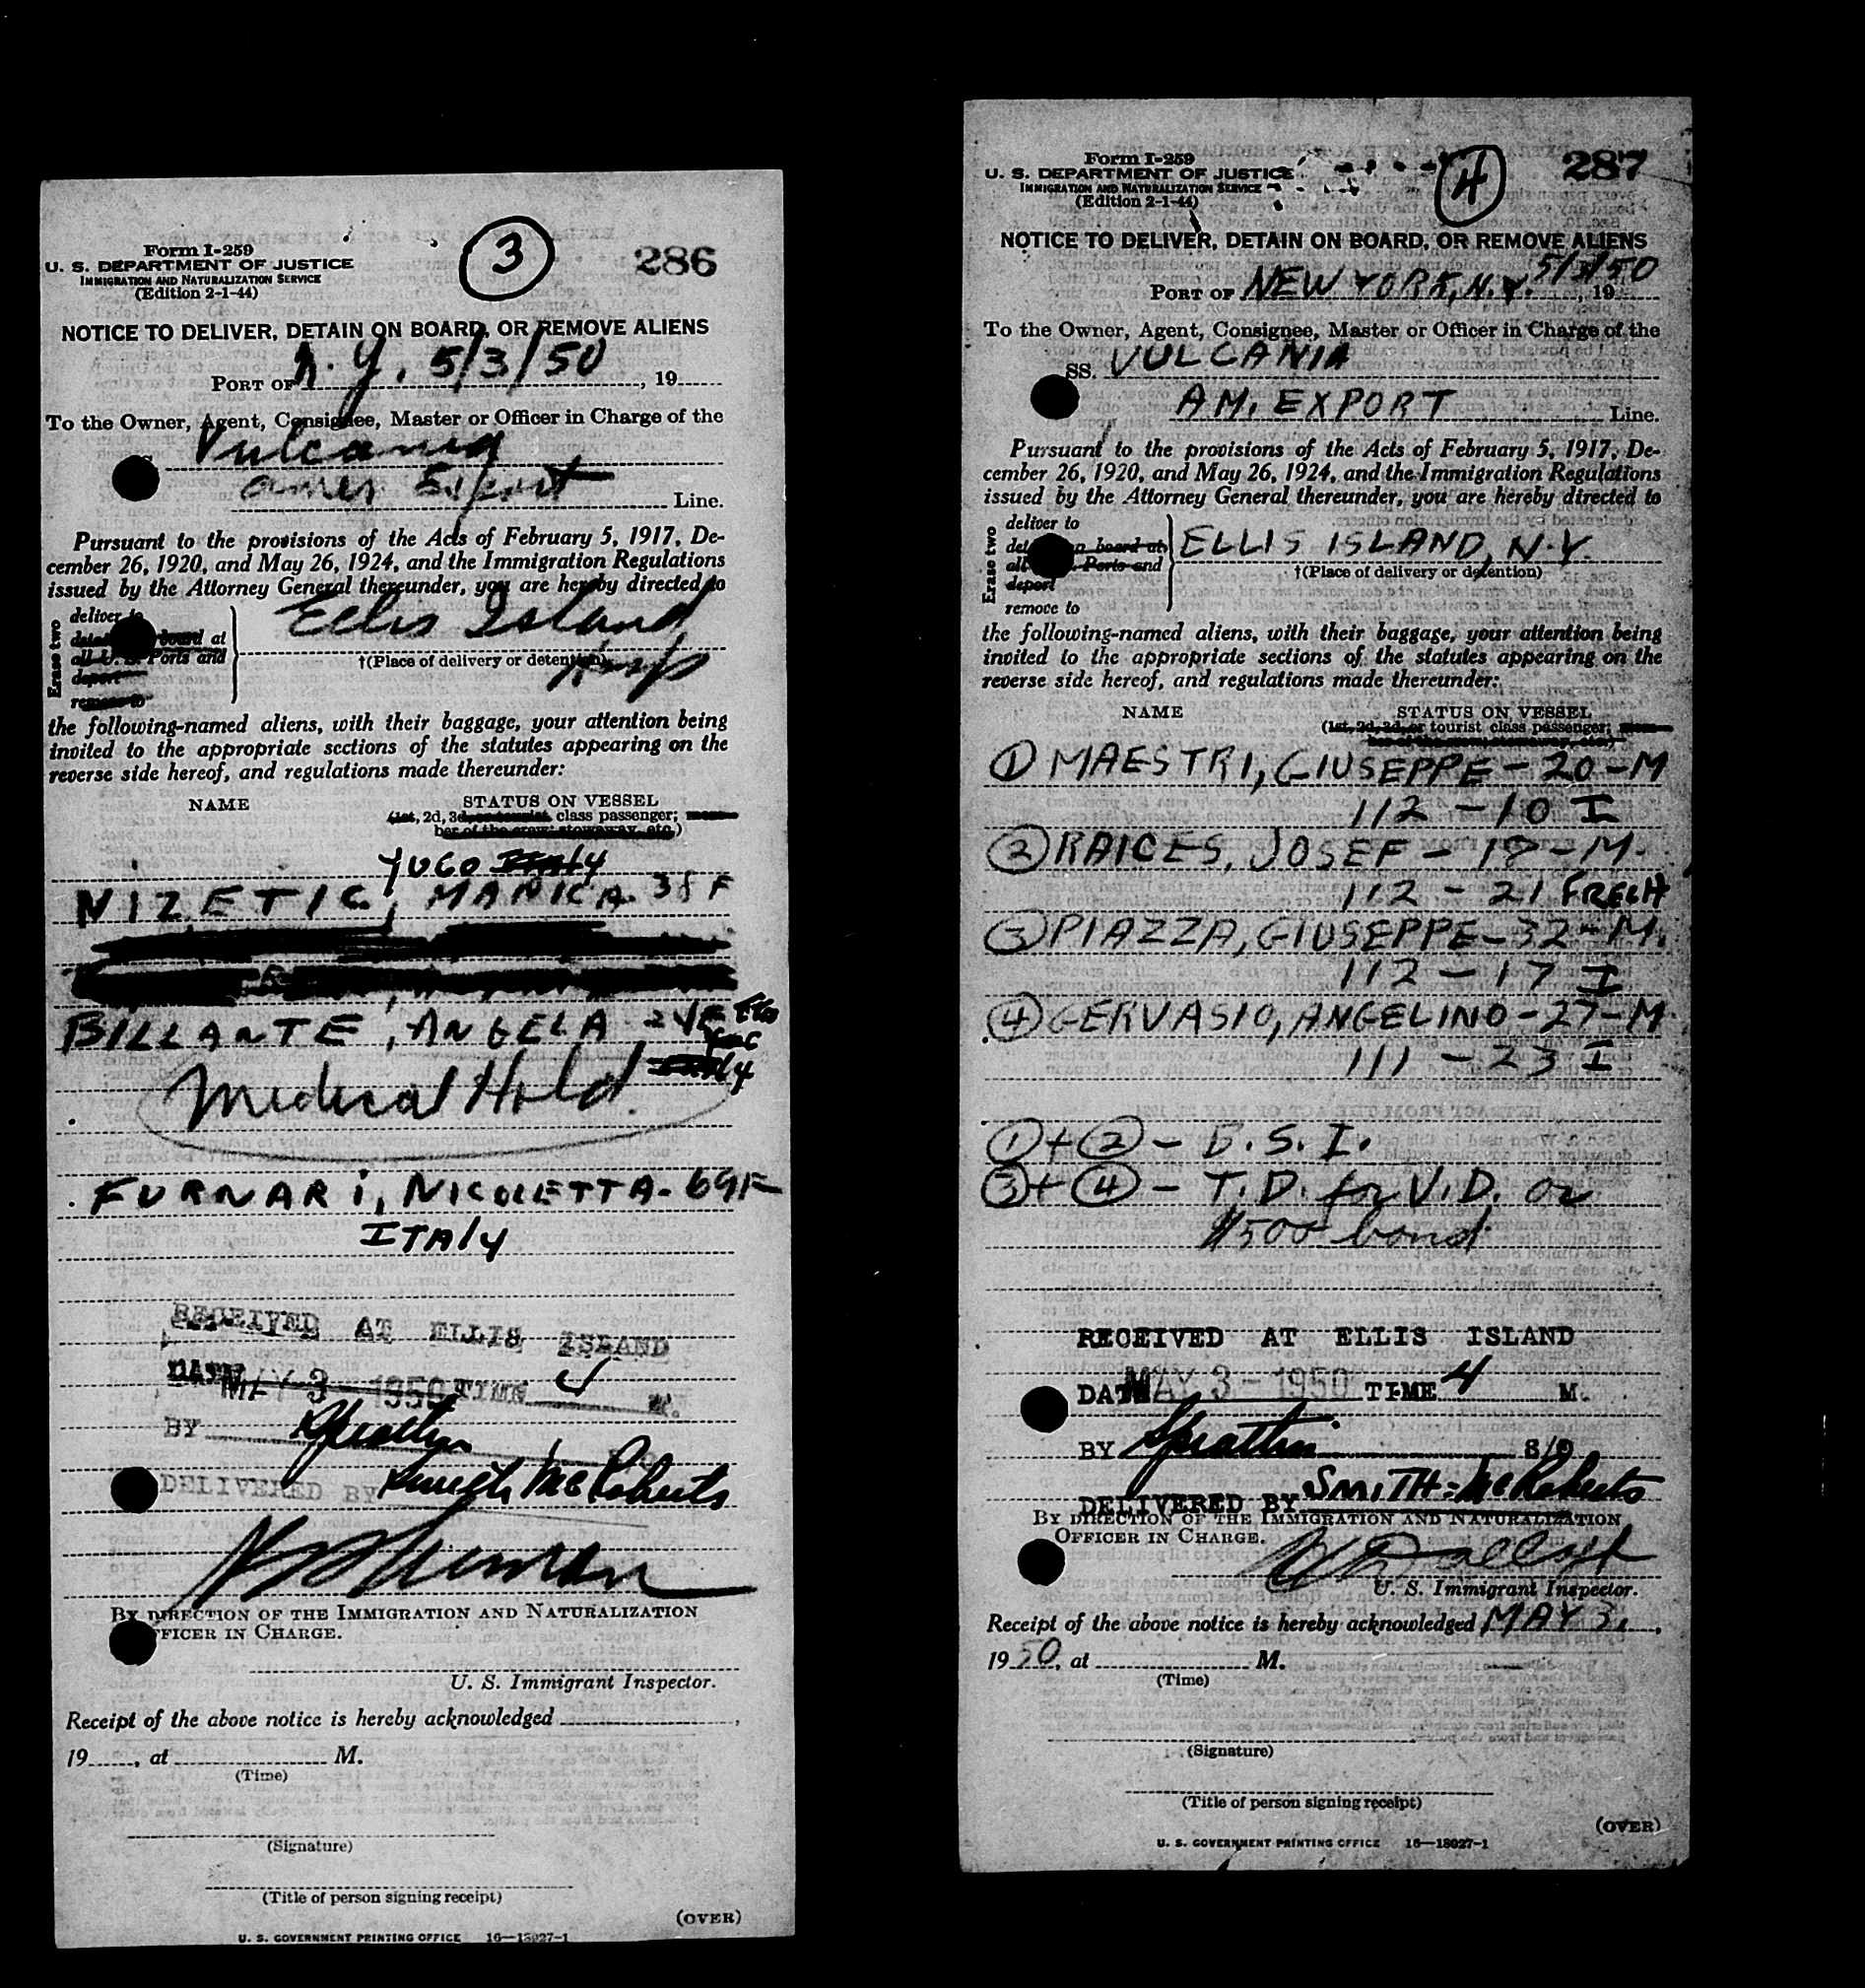 Form I-259
U. S. DEPARTMENT OF JUSTICE
IMMIGRATION AND NATURALIZATION SERVICE
(Edition 2-1-44)
3
286
NOTICE TO DELIVER, DETAIN ON BOARD, OR REMOVE ALIENS
PORT OF N.Y. 5/3/50, 19
To the Owner, Agent, Consignee, Master or Officer in Charge of the
Vulcania
Amer Export Line.
Pursuant to the provisions of the Acts of February 5, 1917, De-
cember 26, 1920, and May 26, 1924, and the Immigration Regulations
issued by the Attorney General thereunder, you are hereby directed to
Erase two
deliver to
board at
all U. S. Ports and
deport
remove to
Ellis Island
†(Place of delivery or detention)
Hosp
the following-named aliens, with their baggage, your attention being
invited to the appropriate sections of the statutes appearing on the
reverse side hereof, and regulations made thereunder:
NAME
STATUS ON VESSEL
(1st, 2d, 3d, or tourist class passenger; mem-
ber of the crew; stowaway, etc.)
YUGO ITALY
NIZETIC, MARICA 38 F
BILLANTE, ANGELA 24F
Medical Hold
FURNARI, NICOLETTA - 69F
ITALY
RECEIVED AT ELLIS ISLAND
DATE MAY 3 - 1950 TIME 4 M.
BY Sprattlin
DELIVERED BY Smith McRoberts
BY DIRECTION OF THE IMMIGRATION AND NATURALIZATION
OFFICER IN CHARGE.
U. S. Immigrant Inspector.
Receipt of the above notice is hereby acknowledged ,
19, at M.
(Time)
(Signature)
(Title of person signing receipt)
(OVER)
U. S. GOVERNMENT PRINTING OFFICE 16—18027-1
Form I-259
U. S. DEPARTMENT OF JUSTICE
IMMIGRATION AND NATURALIZATION SERVICE
(Edition 2-1-44)
4
287
NOTICE TO DELIVER, DETAIN ON BOARD, OR REMOVE ALIENS
PORT OF NEW YORK, N.Y. 5/3/50, 19
To the Owner, Agent, Consignee, Master or Officer in Charge of the
SS. VULCANIA
AM. EXPORT Line.
Pursuant to the provisions of the Acts of February 5, 1917, De-
cember 26, 1920, and May 26, 1924, and the Immigration Regulations
issued by the Attorney General thereunder, you are hereby directed to
Erase two
deliver to
on board at
all Ports and
deport
remove to
ELLIS ISLAND, N.Y.
†(Place of delivery or detention)
the following-named aliens, with their baggage, your attention being
invited to the appropriate sections of the statutes appearing on the
reverse side hereof, and regulations made thereunder:
NAME
STATUS ON VESSEL
(1st, 2d, 3d, or tourist class passenger; mem-
ber of the crew; stowaway, etc.)
1 MAESTRI, GIUSEPPE - 20 - M
112 - 10 I
2 RAICES, JOSEF - 17 - M.
112 - 21 FRECH
3 PIAZZA, GIUSEPPE - 32 - M.
112 - 17 I
4 GERVASIO, ANGELINO - 27 - M
111 - 23 I
1 + 2 - B.S.I.
3 + 4 - T.D. for V.D. or
$500 bond
RECEIVED AT ELLIS ISLAND
DATE MAY 3 - 1950 TIME 4 M.
BY Sprattlin S/O
DELIVERED BY SMITH = McRoberts
BY DIRECTION OF THE IMMIGRATION AND NATURALIZATION
OFFICER IN CHARGE.
U. S. Immigrant Inspector.
Receipt of the above notice is hereby acknowledged MAY 3,
1950, at M.
(Time)
(Signature)
(Title of person signing receipt)
(OVER)
U. S. GOVERNMENT PRINTING OFFICE 16—18027-1